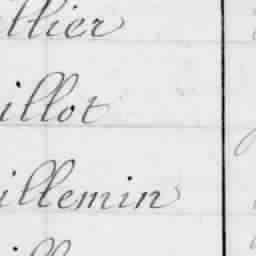 llier
illot
illemin
ill